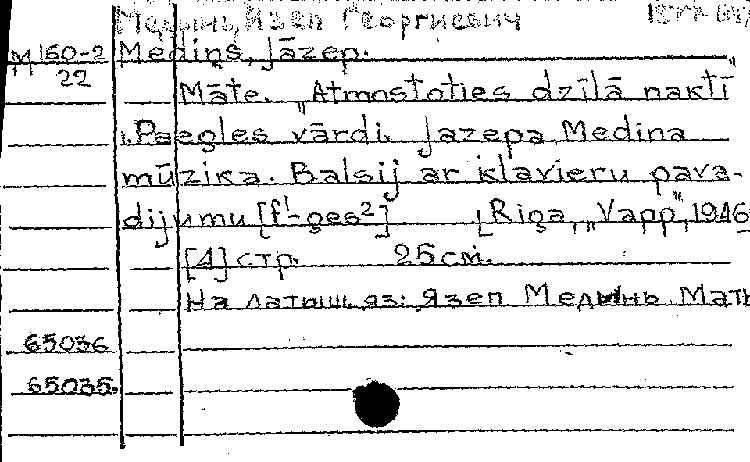 Медынь, Язеп Георгиевич
М 160-2 Mediņš, Jāzep.
22
Māte. „Atmostoties dzīlā naktī"
. Paegles vārdi. Jazepa Medina
mūzika. Balsij ar klavieru pava-
dijumu [f¹-ges²] [Riga, „Vapp", 1946
[4] стр. 25 см.
На латыш. яз: Язеп Медынь. Мать
65036
65035.